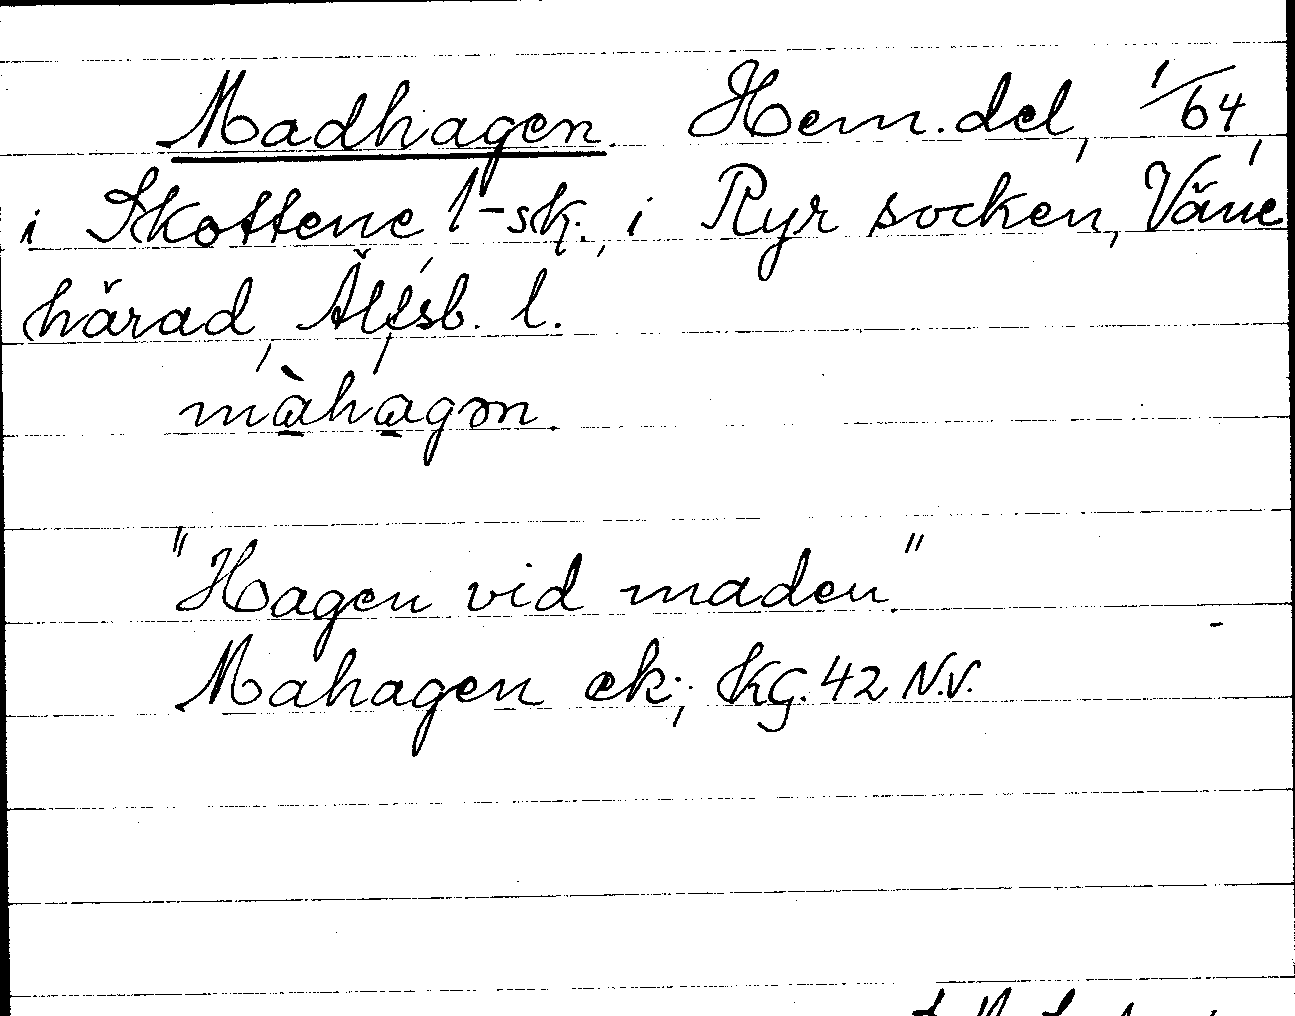 Madhagen. Hem.del, 1/64,
i Skottene, 1-sk., i Ryr socken, Väne
härad, Älfsb. l.
màhagən.
"Hagen vid maden."
Mahagen ek; KG. 42 N.V.